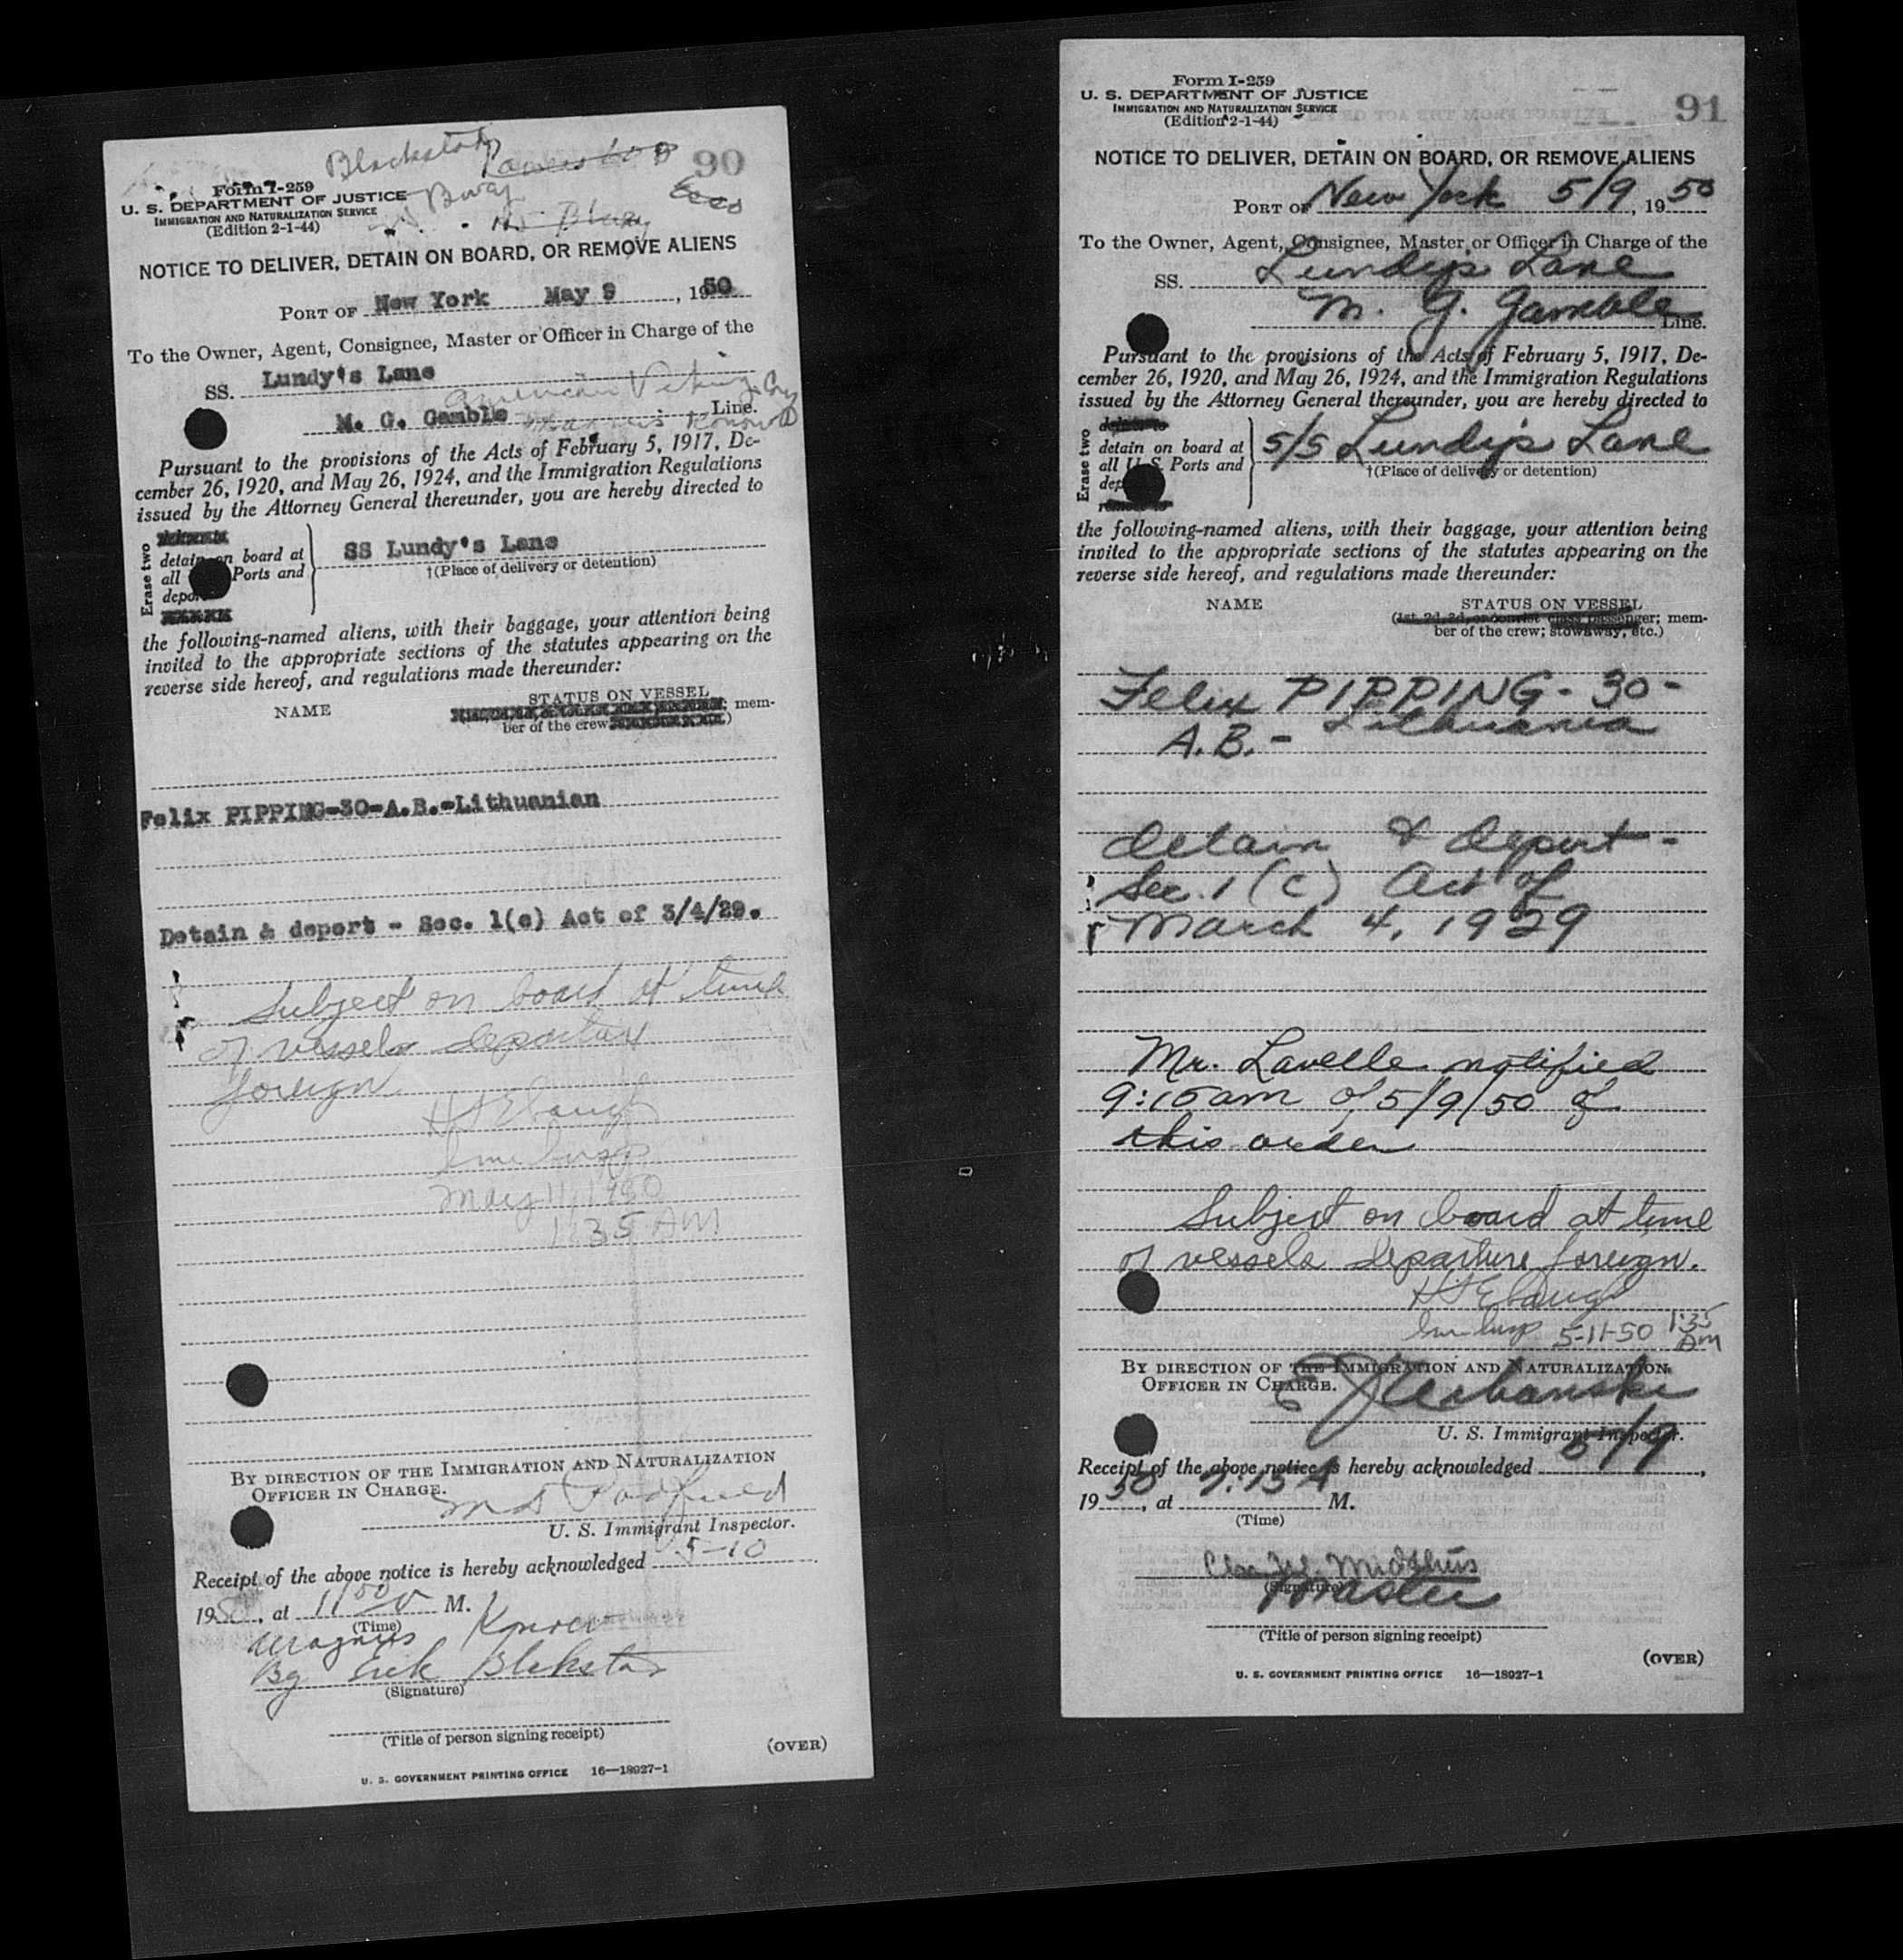 Blackstab
90
Form I-259
U. S. DEPARTMENT OF JUSTICE
IMMIGRATION AND NATURALIZATION SERVICE
(Edition 2-1-44)
NOTICE TO DELIVER, DETAIN ON BOARD, OR REMOVE ALIENS
PORT OF New York May 9, 1950
To the Owner, Agent, Consignee, Master or Officer in Charge of the
SS. Lundy's Lane
M. G. Gamble Line.
Pursuant to the provisions of the Acts of February 5, 1917, De-
cember 26, 1920, and May 26, 1924, and the Immigration Regulations
issued by the Attorney General thereunder, you are hereby directed to
Erase two
detain on board at
all Ports and
SS Lundy's Lane
†(Place of delivery or detention)
the following-named aliens, with their baggage, your attention being
invited to the appropriate sections of the statutes appearing on the
reverse side hereof, and regulations made thereunder:
NAME
STATUS ON VESSEL
mem-
ber of the crew )
Felix PIPPING-30-A.B.-Lithuanian
Detain & deport - Sec. 1(c) Act of 3/4/29.
Subject on board at time
of vessels departure
foreign.
H Ebaugh
Imm Insp
May 11, 1950
1:35 AM
BY DIRECTION OF THE IMMIGRATION AND NATURALIZATION
OFFICER IN CHARGE.
U. S. Immigrant Inspector.
Receipt of the above notice is hereby acknowledged 5-10
1950, at 11 50 M.
(Time)
Magnus
By Erik
(Signature)
(Title of person signing receipt)
(OVER)
U. S. GOVERNMENT PRINTING OFFICE 16—18927-1
91
Form I-259
U. S. DEPARTMENT OF JUSTICE
IMMIGRATION AND NATURALIZATION SERVICE
(Edition 2-1-44)
NOTICE TO DELIVER, DETAIN ON BOARD, OR REMOVE ALIENS
PORT OF New York 5/9, 1950
To the Owner, Agent, Consignee, Master or Officer in Charge of the
SS. Lundy's Lane
M. G. Gamble Line.
Pursuant to the provisions of the Acts of February 5, 1917, De-
cember 26, 1920, and May 26, 1924, and the Immigration Regulations
issued by the Attorney General thereunder, you are hereby directed to
Erase two
deliver to
detain on board at
all U.S. Ports and
remove to
S/S Lundy's Lane
†(Place of delivery or detention)
the following-named aliens, with their baggage, your attention being
invited to the appropriate sections of the statutes appearing on the
reverse side hereof, and regulations made thereunder:
NAME
STATUS ON VESSEL
(1st, 2d, 3d, or tourist class passenger; mem-
ber of the crew; stowaway, etc.)
Felix PIPPING - 30 -
A.B. - Lithuania
detain & deport -
Sec. 1 (c) Act of
March 4, 1929
Mr. Lavelle notified
9:15 am of 5/9/50 of
this order
Subject on board at time
of vessels departure foreign.
H Ebaugh
Imm Insp 5-11-50 1:35 Am
BY DIRECTION OF THE IMMIGRATION AND NATURALIZATION
OFFICER IN CHARGE.
U. S. Immigrant Inspector.
Receipt of the above notice is hereby acknowledged 5/9,
1950, at M.
(Time)
(Signature)
Master
(Title of person signing receipt)
(OVER)
U. S. GOVERNMENT PRINTING OFFICE 16—18927-1